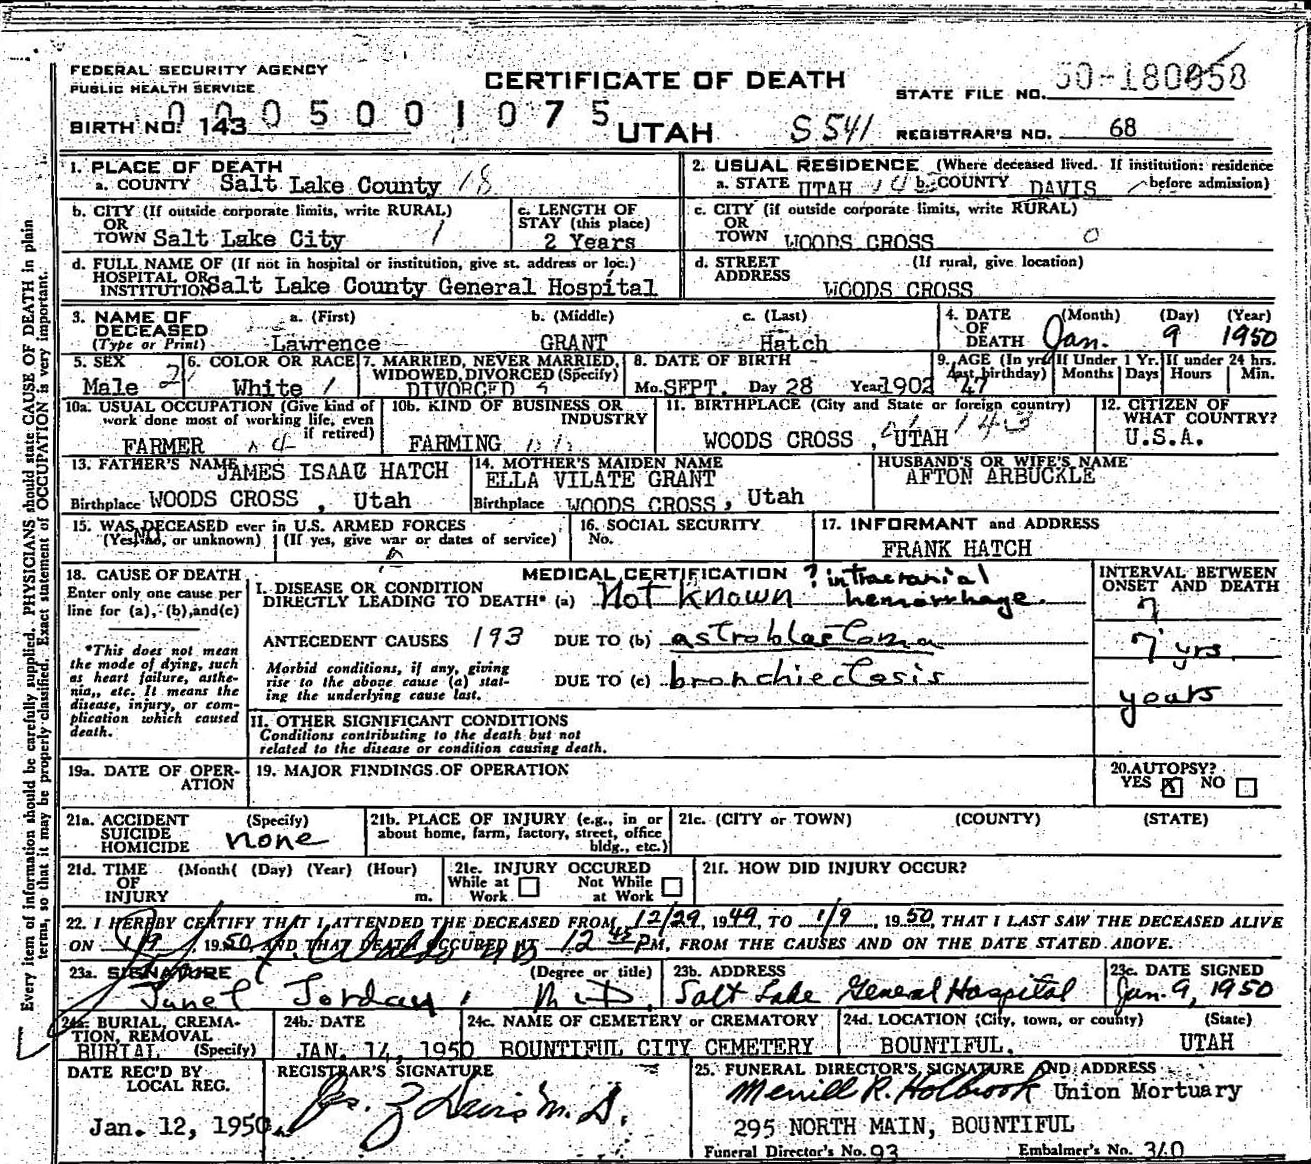 FEDERAL SECURITY AGENCY
PUBLIC HEALTH SERVICE
CERTIFICATE OF DEATH
STATE FILE NO.
BIRTH NO. 143
0005001075
UTAH
S 541
REGISTRAR'S NO. 68
1. PLACE OF DEATH
a. COUNTY Salt Lake County 18
2. USUAL RESIDENCE (Where deceased lived. If institution: residence before admission)
a. STATE UTAH b. COUNTY DAVIS
b. CITY (If outside corporate limits, write RURAL)
OR
TOWN Salt Lake City 1
c. LENGTH OF STAY (this place)
2 Years
c. CITY (if outside corporate limits, write RURAL)
OR
TOWN WOODS CROSS 0
d. FULL NAME OF (If not in hospital or institution, give st. address or loc.)
HOSPITAL OR
INSTITUTION Salt Lake County General Hospital
d. STREET (If rural, give location)
ADDRESS WOODS CROSS
3. NAME OF DECEASED
(Type or Print)
a. (First) b. (Middle) c. (Last)
Lawrence GRANT Hatch
4. DATE OF DEATH (Month) (Day) (Year)
Jan. 9 1950
5. SEX
Male 2
6. COLOR OR RACE
White 1
7. MARRIED, NEVER MARRIED, WIDOWED, DIVORCED (Specify)
DIVORCED
8. DATE OF BIRTH
Mo. SEPT. Day 28 Year 1902
9. AGE (In yrs last birthday) 47
If Under 1 Yr. Months Days
If under 24 hrs. Hours Min.
10a. USUAL OCCUPATION (Give kind of work done most of working life, even if retired)
FARMER
10b. KIND OF BUSINESS OR INDUSTRY
FARMING
11. BIRTHPLACE (City and State or foreign country)
WOODS CROSS, UTAH 143
12. CITIZEN OF WHAT COUNTRY?
U.S.A.
13. FATHER'S NAME
JAMES ISAAC HATCH
Birthplace WOODS CROSS, Utah
14. MOTHER'S MAIDEN NAME
ELLA VILATE GRANT
Birthplace WOODS CROSS, Utah
HUSBAND'S OR WIFE'S NAME
AFTON ARBUCKLE
15. WAS DECEASED ever in U.S. ARMED FORCES
(Yes, no, or unknown) (If yes, give war or dates of service)
NO
16. SOCIAL SECURITY
No.
17. INFORMANT and ADDRESS
FRANK HATCH
18. CAUSE OF DEATH
Enter only one cause per line for (a), (b), and (c)
*This does not mean the mode of dying, such as heart failure, asthenia, etc. It means the disease, injury, or complication which caused death.
MEDICAL CERTIFICATION
I. DISEASE OR CONDITION
DIRECTLY LEADING TO DEATH* (a) Not known ? intracranial hemorrhage.
ANTECEDENT CAUSES 193 DUE TO (b) astroblastoma
Morbid conditions, if any, giving rise to the above cause (a) stating the underlying cause last.
DUE TO (c) bronchiectasis
INTERVAL BETWEEN ONSET AND DEATH
?
7 yrs
years
II. OTHER SIGNIFICANT CONDITIONS
Conditions contributing to the death but not related to the disease or condition causing death.
19a. DATE OF OPERATION
19. MAJOR FINDINGS OF OPERATION
20. AUTOPSY?
YES X NO
21a. ACCIDENT SUICIDE HOMICIDE (Specify)
none
21b. PLACE OF INJURY (e.g., in or about home, farm, factory, street, office bldg., etc.)
21c. (CITY or TOWN) (COUNTY) (STATE)
21d. TIME OF INJURY (Month( (Day) (Year) (Hour) m.
21e. INJURY OCCURED
While at Work Not While at Work
21f. HOW DID INJURY OCCUR?
22. I HEREBY CERTIFY THAT I ATTENDED THE DECEASED FROM 12/29, 1949, TO 1/9, 1950, THAT I LAST SAW THE DECEASED ALIVE
ON 1/9 1950 AND THAT DEATH OCCURED AT 12 45 PM, FROM THE CAUSES AND ON THE DATE STATED ABOVE.
23a. SIGNATURE (Degree or title)
Janet Jordan, M.D.
23b. ADDRESS
Salt Lake General Hospital
23c. DATE SIGNED
Jan. 9, 1950
24a. BURIAL, CREMATION, REMOVAL (Specify)
BURIAL
24b. DATE
JAN. 14, 1950
24c. NAME OF CEMETERY or CREMATORY
BOUNTIFUL CITY CEMETERY
24d. LOCATION (City, town, or county) (State)
BOUNTIFUL. UTAH
DATE REC'D BY LOCAL REG.
Jan. 12, 1950
REGISTRAR'S SIGNATURE
25. FUNERAL DIRECTOR'S SIGNATURE AND ADDRESS
Merrill R. Holbrook Union Mortuary
295 NORTH MAIN, BOUNTIFUL
Funeral Director's No. 93 Embalmer's No. 340
Every item of information should be carefully supplied. PHYSICIANS should state CAUSE OF DEATH in plain
terms, so that it may be properly classified. Exact statement of OCCUPATION is very important.